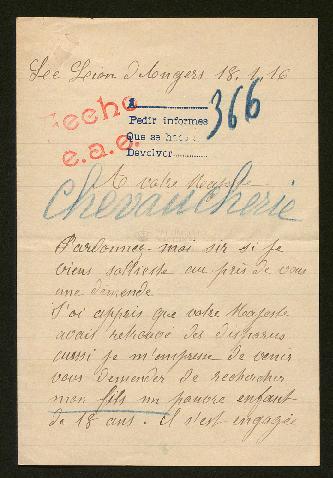 Le Lion d'Angers 18.1.16
Fecho
e.a.e.
A
Pedir informes
Que se
Devolver
366
A votre Majesté
Chevaucherie
Pardonnez-moi sir si je
viens sollisite au près de vous
une demende
J'oi appris que votre Majeste
avait retrouvé des disparus
aussi je m'empresse de venir
vous demender de rechercher
mon fils un pauvre enfant
de 18 ans. il s'est engagée